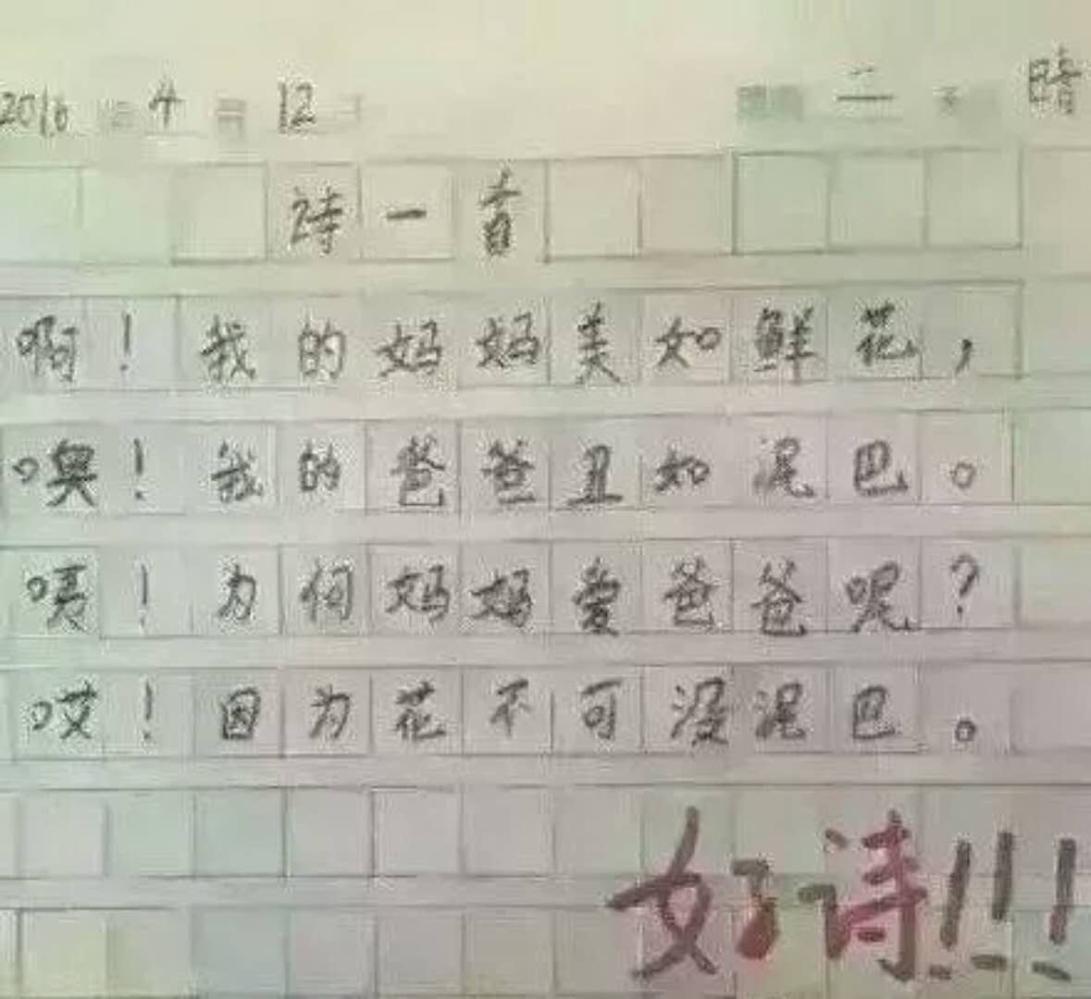 2016 4 12 二 晴
诗一首
啊！我的妈妈美如鲜花，
噢！我的爸爸丑如泥巴。
唛！为何妈妈爱爸爸呢？
哎！因为花不可没泥巴。
好诗!!!